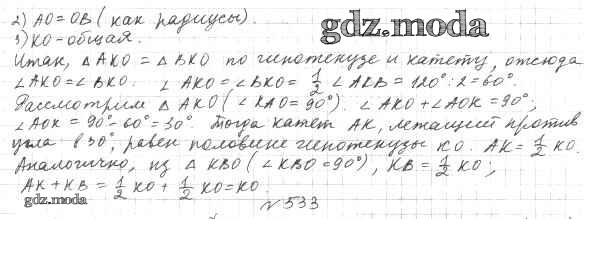 2) AO = OB (как радиусы).
gdz.moda
3) KO - общая.
Итак, △ AKO = △ BKO по гипотенузе и катету, отсюда
∠ AKO = ∠ BKO. ∠ AKO = ∠ BKO = 1/2 ∠ AKB = 120° : 2 = 60°.
Рассмотрим △ AKO (∠ KAO = 90°). ∠ AKO + ∠ AOK = 90°;
∠ AOK = 90° - 60° = 30°. Тогда катет AK, лежащий против
угла в 30°, равен половине гипотенузы KO. AK = 1/2 KO.
Аналогично, из △ KBO (∠ KBO = 90°), KB = 1/2 KO;
AK + KB = 1/2 KO + 1/2 KO = KO.
gdz.moda
№ 533